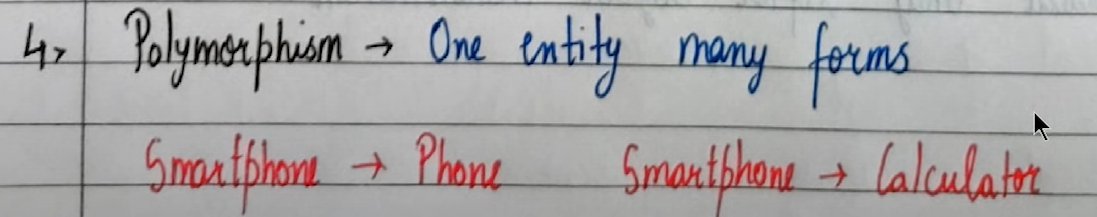 4> Polymorphism → One entity many forms
Smartphone → Phone Smartphone → Calculator